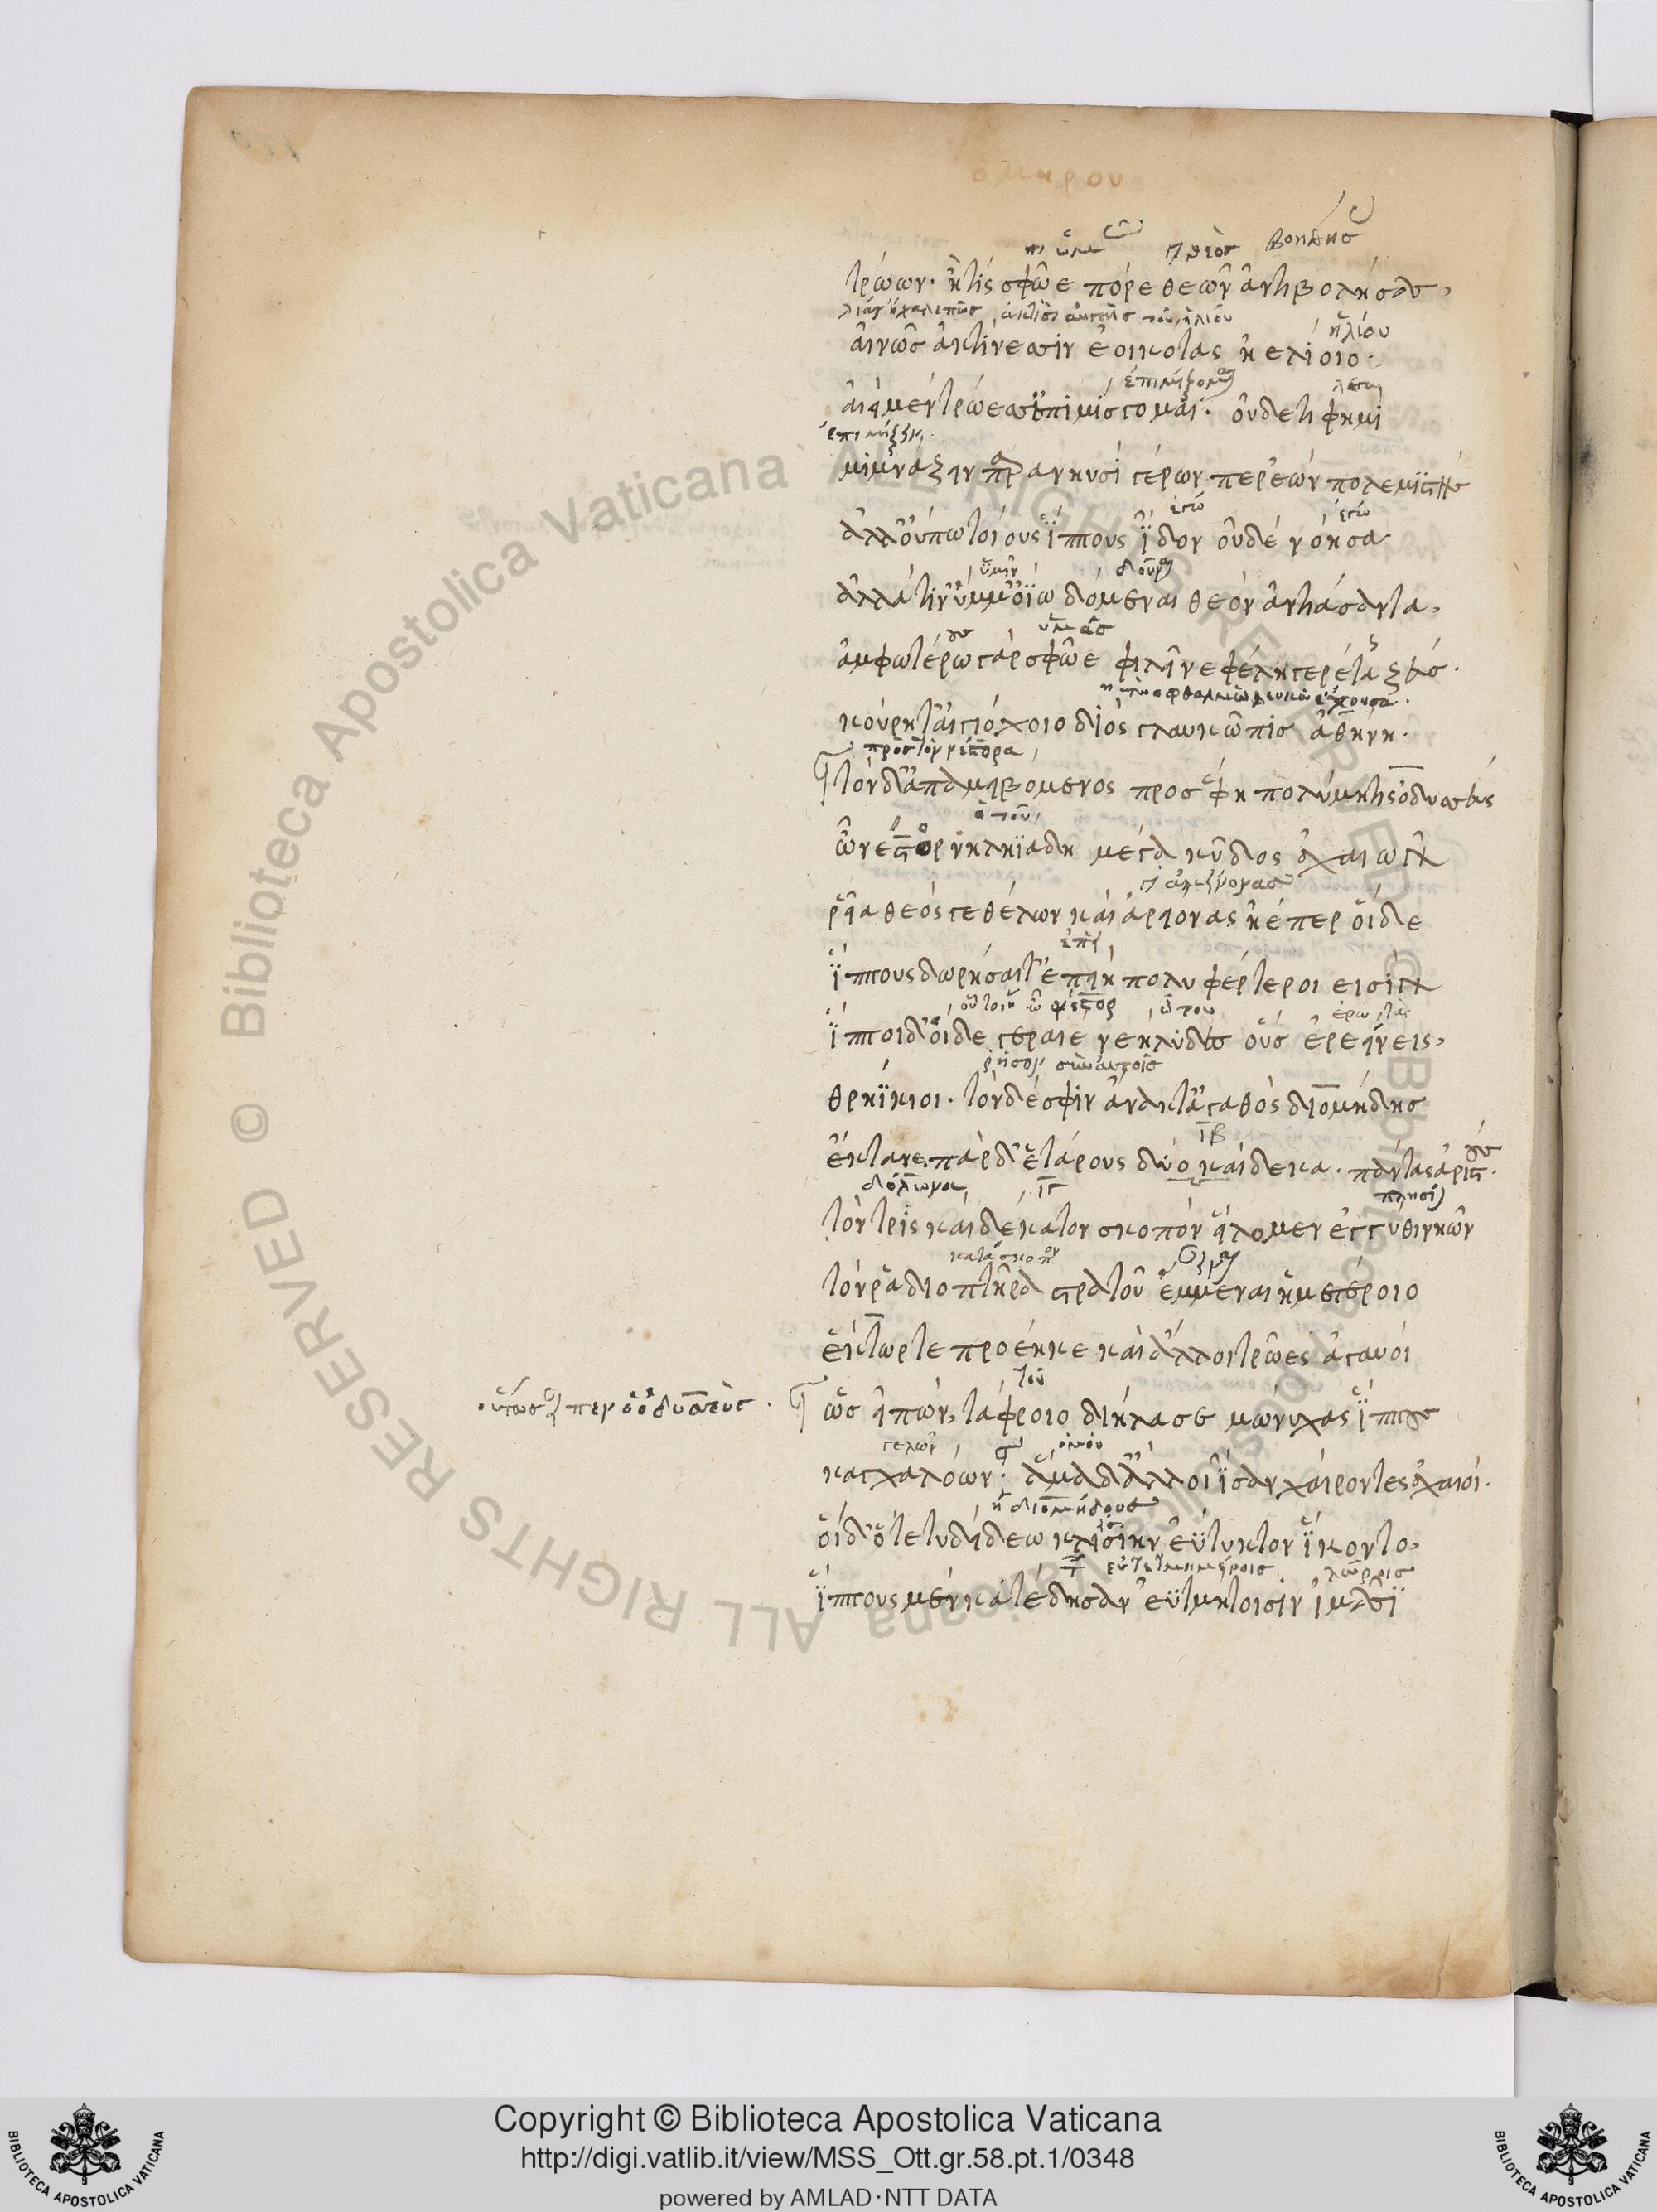 ομηρου
τρώων· ἤ τίς σφῶε πόρε θεῶν ἀντιβολήσας,
ἡλίου
αἰνῶς ἀκτίνεσσιν ἐοικότας ἠελίοιο·
αἰεὶ μὲν τρώεσσ' ἐπιμίσγομαι· οὐδέ τι φημὶ
μιμνάζειν παρὰ νηυσὶ γέρων περ ἐὼν πολεμιστής
ἐγώ
ἀλλ' οὔπω τοίους ἵππους ἴδον οὐδὲ νόησα
ὑμῖν
ἀλλά τιν' ὔμμ' ὀΐω δόμεναι θεὸν ἀντιάσαντα,
ὑμᾶς
ἀμφοτέρω γάρ σφῶε φιλεῖ νεφεληγερέτα ζεύς·
κούρη τ' αἰγιόχοιο διὸς γλαυκῶπις ἀθήνη·
πρὸς τὸν νέστορα
τὸν δ' ἀπαμειβόμενος προσέφη πολύμητις ὀδυσσεύς
ὦ νέστορ νηληϊάδη μέγα κῦδος ἀχαιῶν
ῥεῖα θεός γ' ἐθέλων καὶ ἀμείνονας ἠέ περ οἵδε
ἵππους δωρήσαιτ' ἐπειὴ πολὺ φέρτεροι εἰσίν
ἵπποι δ' οἵδε γεραιὲ νεήλυδες οὓς ἐρεείνεις,
σὺν αὐτοῖς
θρηΐκιοι· τὸν δέ σφιν ἄνακτ' ἀγαθὸς διομήδης
ιβ
ἔκτανε. πὰρ δ' ἑτάρους δύο καίδεκα· πάντας ἀρίστους·
ιγ
τὸν τρισκαιδέκατον σκοπὸν εἵλομεν ἐγγύθι νηῶν
κατάσκοπον
τόν ῥα διοπτῆρα στρατοῦ ἔμμεναι ἡμετέροιο
ἕκτωρ τε προέηκε καὶ ἄλλοι τρῶες ἀγαυοί
ὣς εἰπών, τάφροιο διήλασε μώνυχας ἵππους
γελῶν
καγχαλόων· ἅμα δ' ἄλλοι ἴσαν χαίροντες ἀχαιοί·
διομήδους
οἱ δ' ὅτε τυδείδεω κλισίην εὔτυκτον ἵκοντο,
ἵππους μὲν κατέδησαν ἐϋτμήτοισιν ἱμᾶσι
Copyright © Biblioteca Apostolica Vaticana
http://digi.vatlib.it/view/MSS_Ott.gr.58.pt.1/0348
powered by AMLAD·NTT DATA
BIBLIOTECA APOSTOLICA VATICANA
BIBLIOTECA APOSTOLICA VATICANA
© Biblioteca Apostolica Vaticana ALL RIGHTS RESERVED